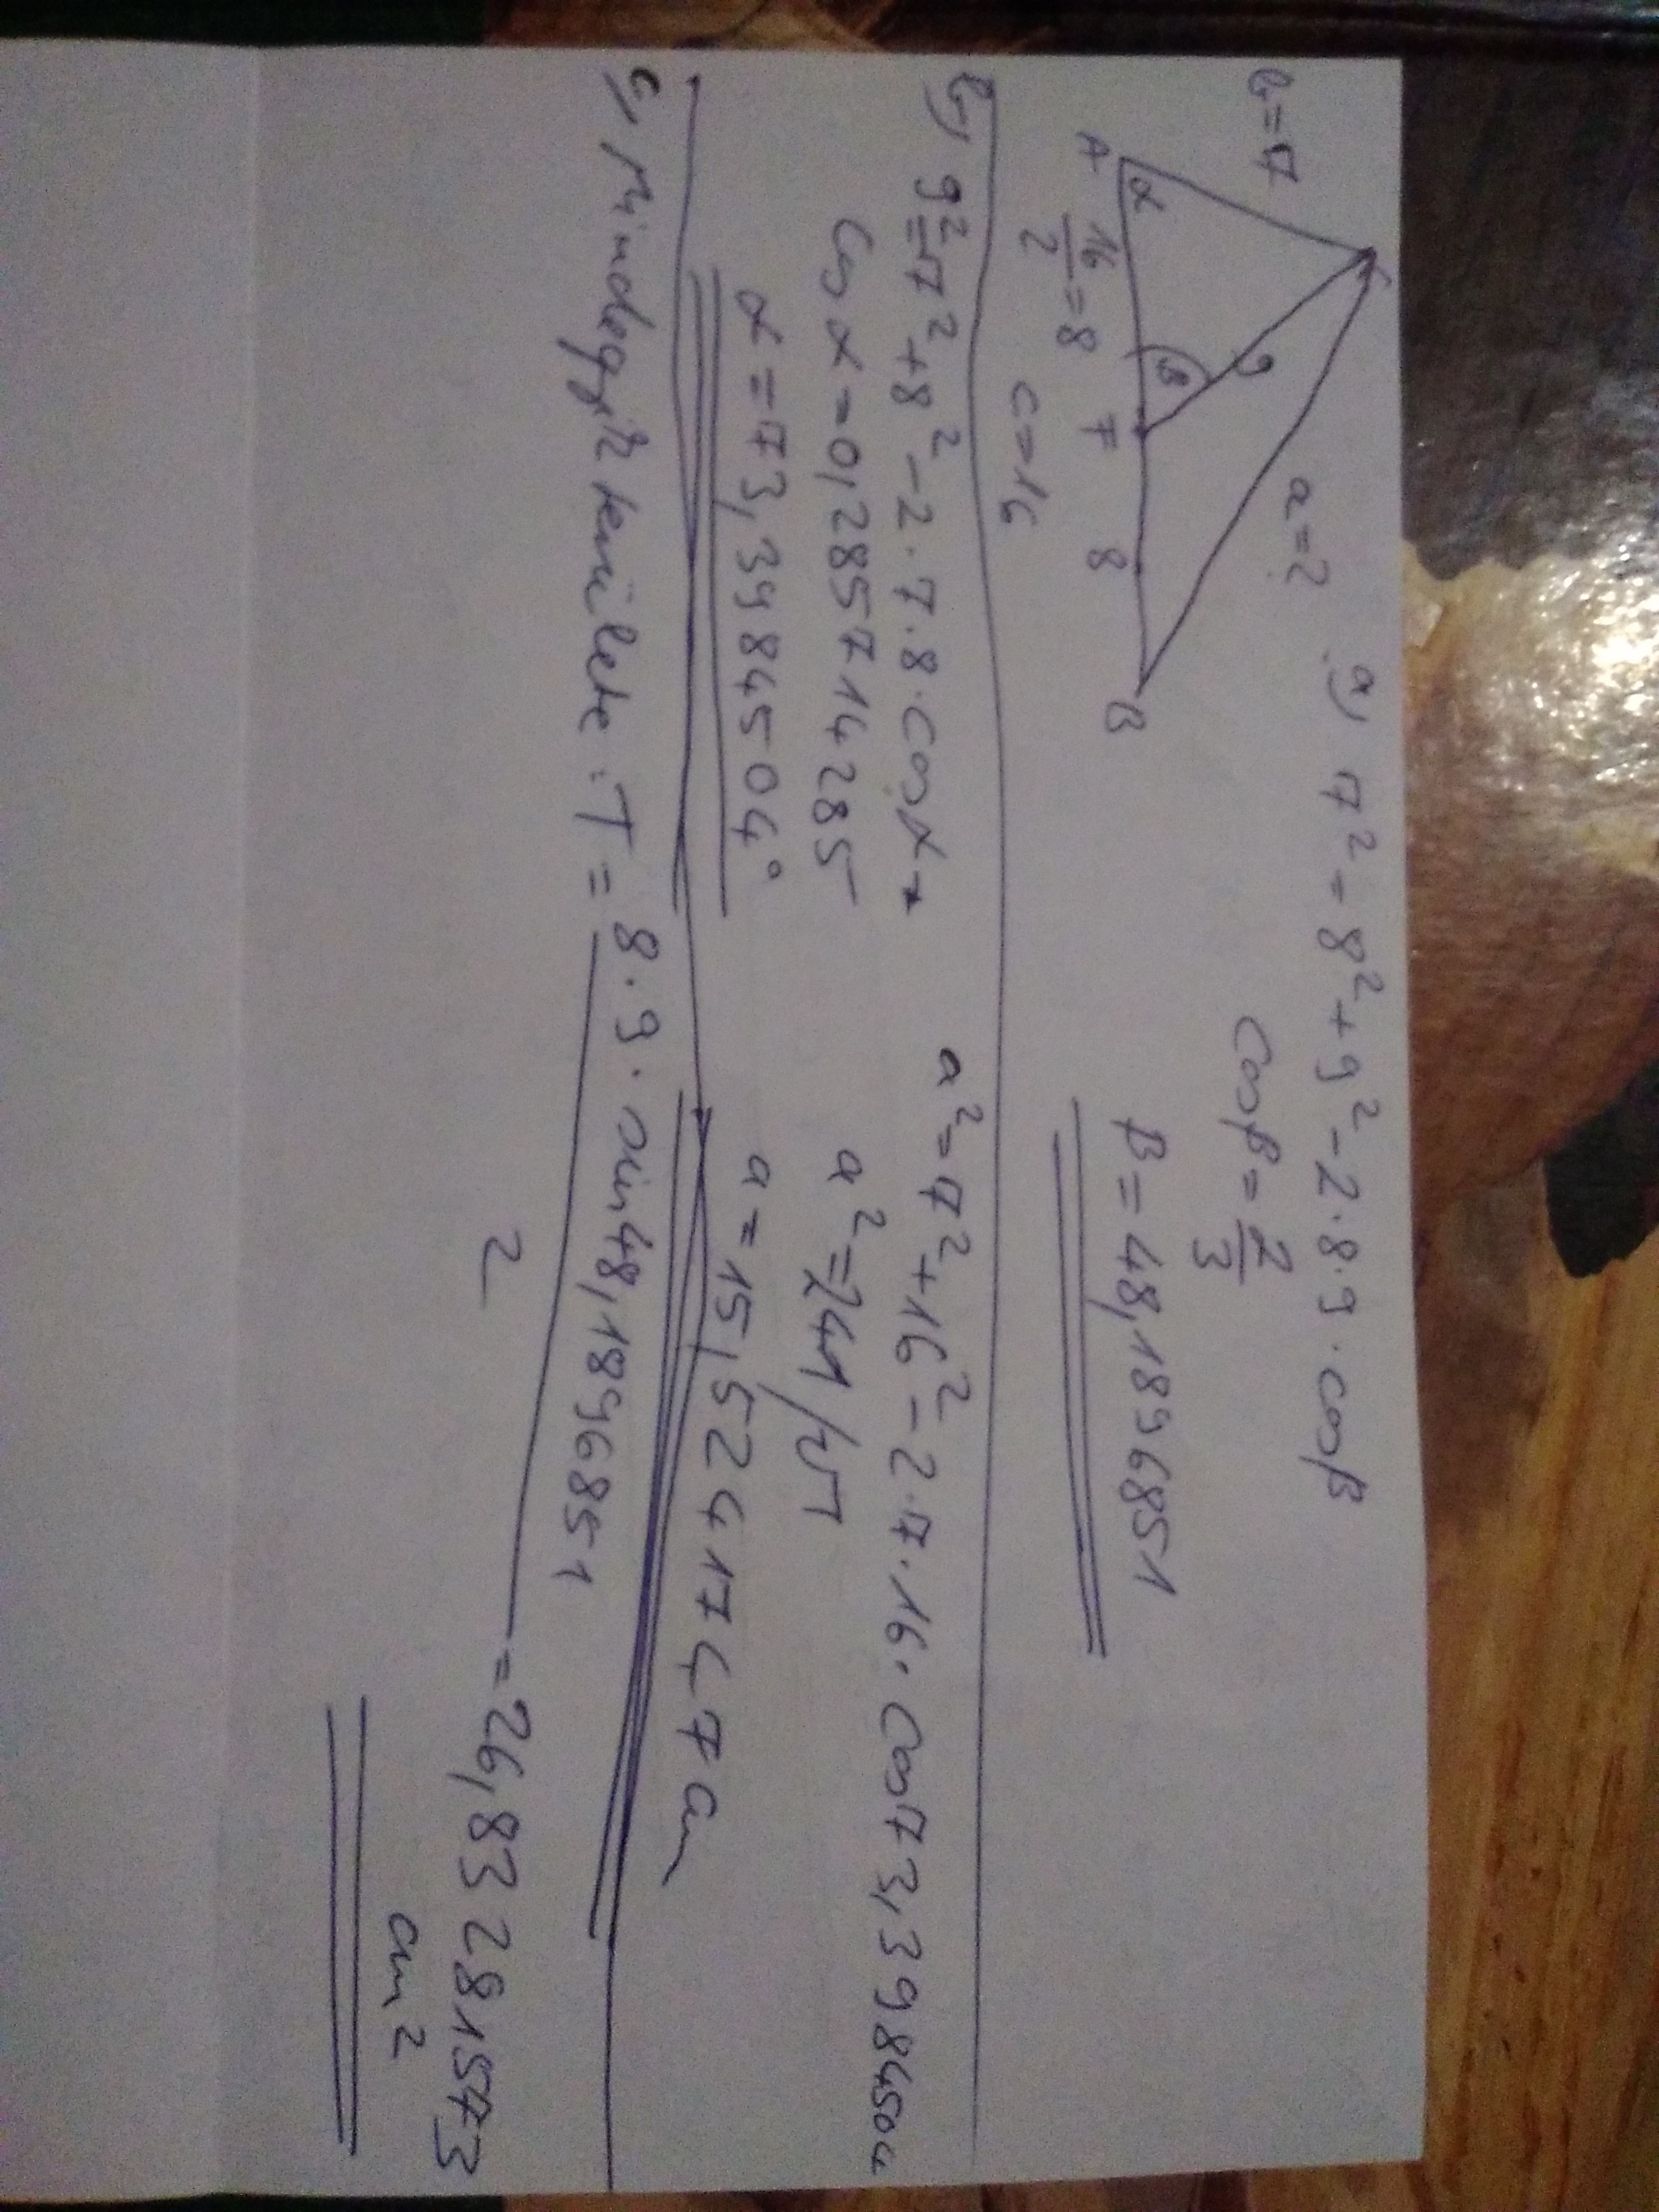 b=7
a=?
9
α
β
A
16/2=8
F
8
B
c=16
a) 7² = 8² + 9² - 2·8·9·cosβ
cosβ = 2/3
β = 48,1896851
b) 9² = 7² + 8² - 2·7·8·cosα →
cosα = 0,285714285
α = 73,3984504°
a² = 7² + 16² - 2·7·16·cos73,3984504
a² = 241 /√
a = 15,52417447 cm
c) Mindegyik területe: T = 8·9·sin48,1896851 / 2 = 26,83281573 cm²